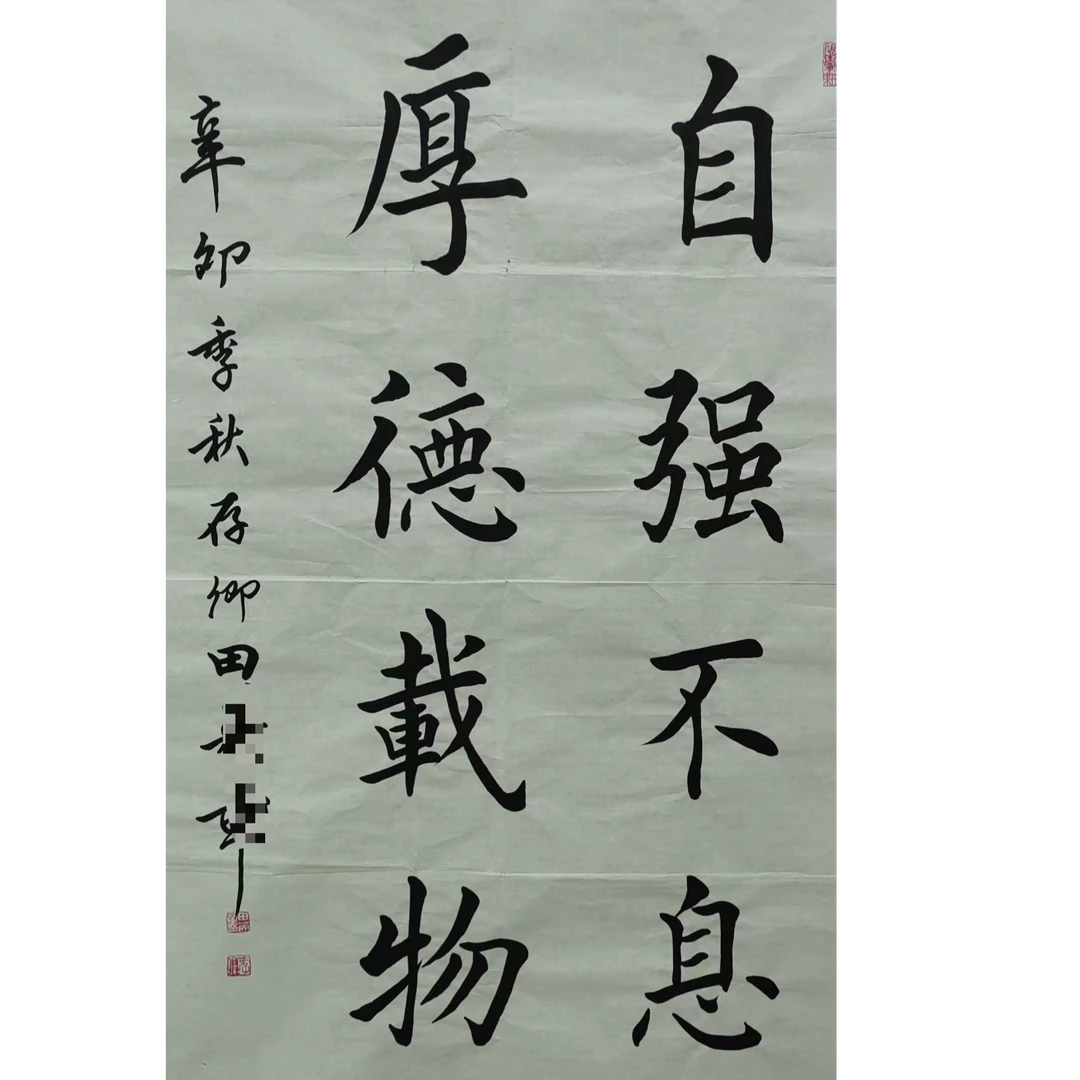 自强不息
厚德載物
辛卯季秋存卿田